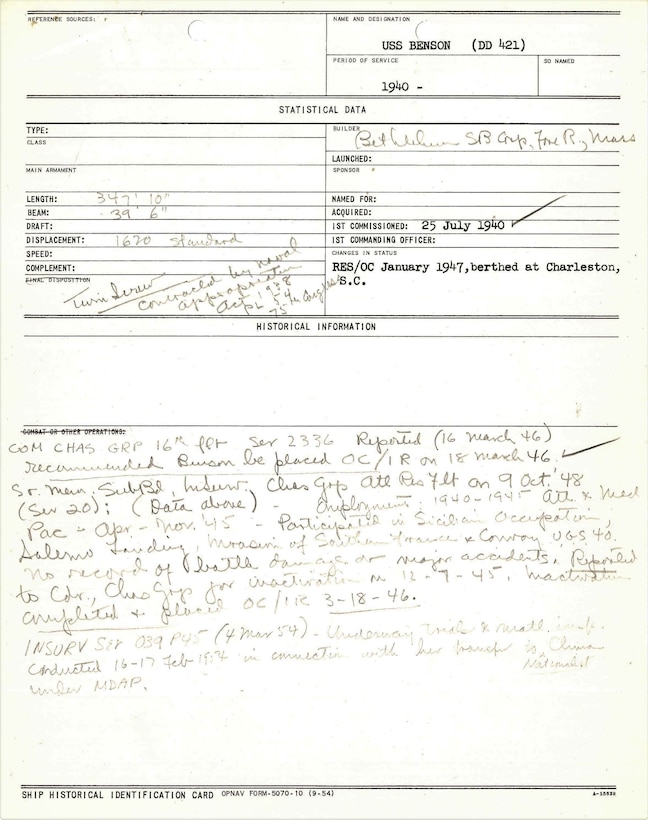 REFERENCE SOURCES:
NAME AND DESIGNATION
USS BENSON (DD 421)
PERIOD OF SERVICE
1940 -
SO NAMED
STATISTICAL DATA
TYPE:
CLASS
MAIN ARMAMENT
LENGTH: 347' 10"
BEAM: 39' 6"
DRAFT:
DISPLACEMENT: 1620 Standard
SPEED:
COMPLEMENT:
FINAL DISPOSITION
Twin Screw
contracted by Naval
appropriation
Act 1938
PL 54
75th Congress
BUILDER
Bethlehem SB Corp, Fore R., Mass
LAUNCHED:
SPONSOR
NAMED FOR:
ACQUIRED:
1ST COMMISSIONED: 25 July 1940
1ST COMMANDING OFFICER:
CHANGES IN STATUS
RES/OC January 1947, berthed at Charleston,
S.C.
HISTORICAL INFORMATION
COMBAT OR OTHER OPERATIONS:
COM CHAS GRP 16th flt Ser 2336 Reported (16 March 46)
recommended Benson be placed OC/IR on 18 March 46.
Sr. Mem. SubBd, InSurv. Chas Grp Atl Res Flt on 9 Oct. '48
(Ser 20); (Data above) - Employment: 1940-1945 Atl. & Med
Pac - Apr - Nov. '45 - Participated in Sicilian Occupation,
Salerno Landing, Invasion of Southern France & Convoy UGS 40.
No record of battle damage or major accidents. Reported
to Cdr., Chas Grp for inactivation on 12-7-45. Inactivation
completed & placed OC/IR 3-18-46.
INSURV Ser 039 P45 (4 Mar 54) - Underway trials & matl. insp.
conducted 16-17 Feb 1954 in connection with her transfer to China
Nationalist
under MDAP.
SHIP HISTORICAL IDENTIFICATION CARD OPNAV FORM-5070-10 (9-54)